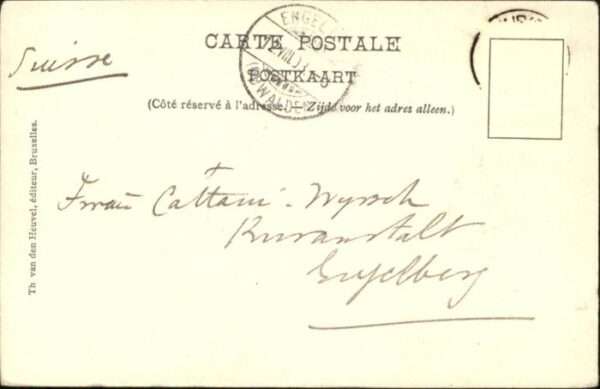 CARTE POSTALE
POSTKAART
(Côté réservé à l'adresse. — Zijde voor het adres alleen.)
Suisse
ENGEL
OBWALDEN
Frau Cattani-Wyrsch
Kuranstalt
Engelberg
Th van den Heuvel, éditeur, Bruxelles.